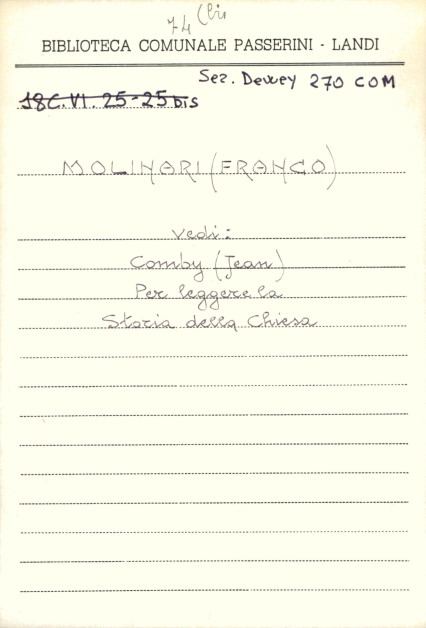 74 (bis
BIBLIOTECA COMUNALE PASSERINI - LANDI
Sez. Dewey 270 COM
18C.VI. 25-25 bis
MOLINARI (FRANCO)
Vedi:
Comby (Jean)
Per leggere la
Storia della Chiesa